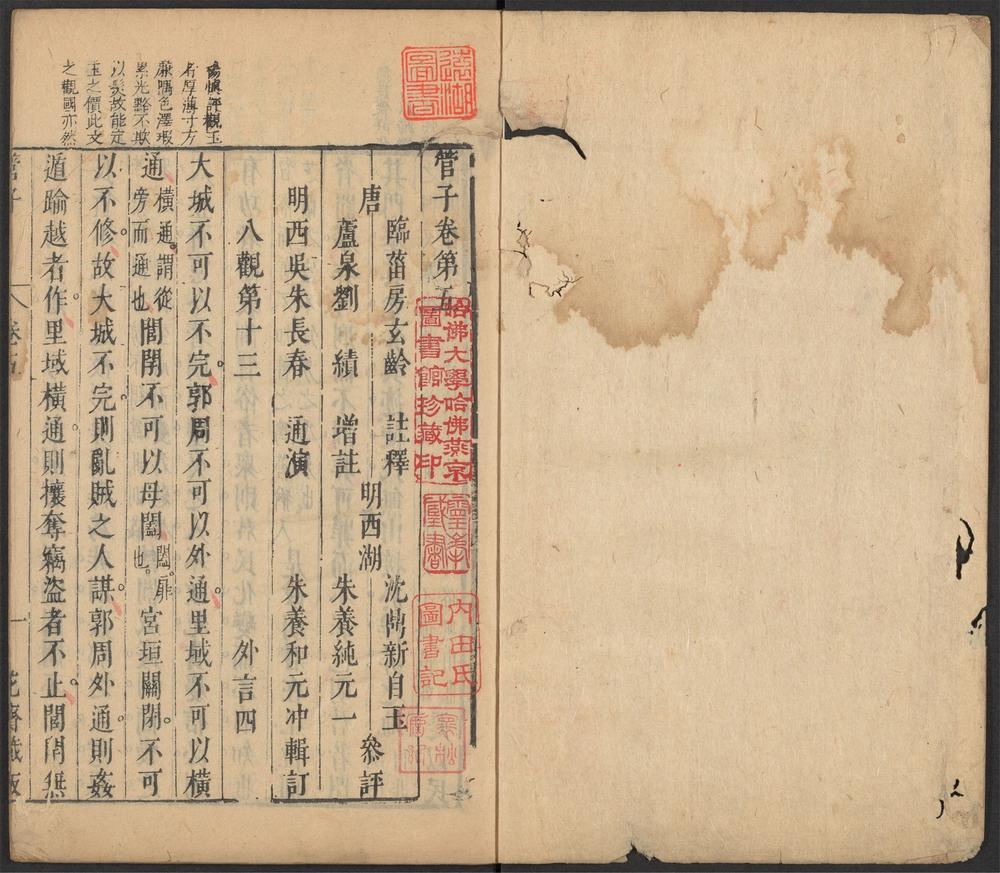 管子卷第五
唐 臨菑房玄齡 註釋
蘆泉劉績 增註
明西吳朱長春 通演
明西湖
沈鼎新自玉
朱養純元一
參評
朱養和元冲輯訂
八觀第十三 外言四
大城不可以不完郭周不可以外通里域不可以橫
通橫通謂從旁而通也閭閈不可以毋闔闔扉也宮垣關閉不可
以不修故大城不完則亂賊之人謀郭周外通則姦
遁踰越者作里域橫通則攘奪竊盜者不止閭閈無
楊慎評觀玉
者厚薄寸方
廉隅色澤瑕
累光鑒不欺
以髮故能定
玉之價此文
之觀國亦然
管子 卷五 一 花齋藏板
遠湖圖書
哈佛大學哈佛燕京
圖書館珍藏印
內田氏
圖書記